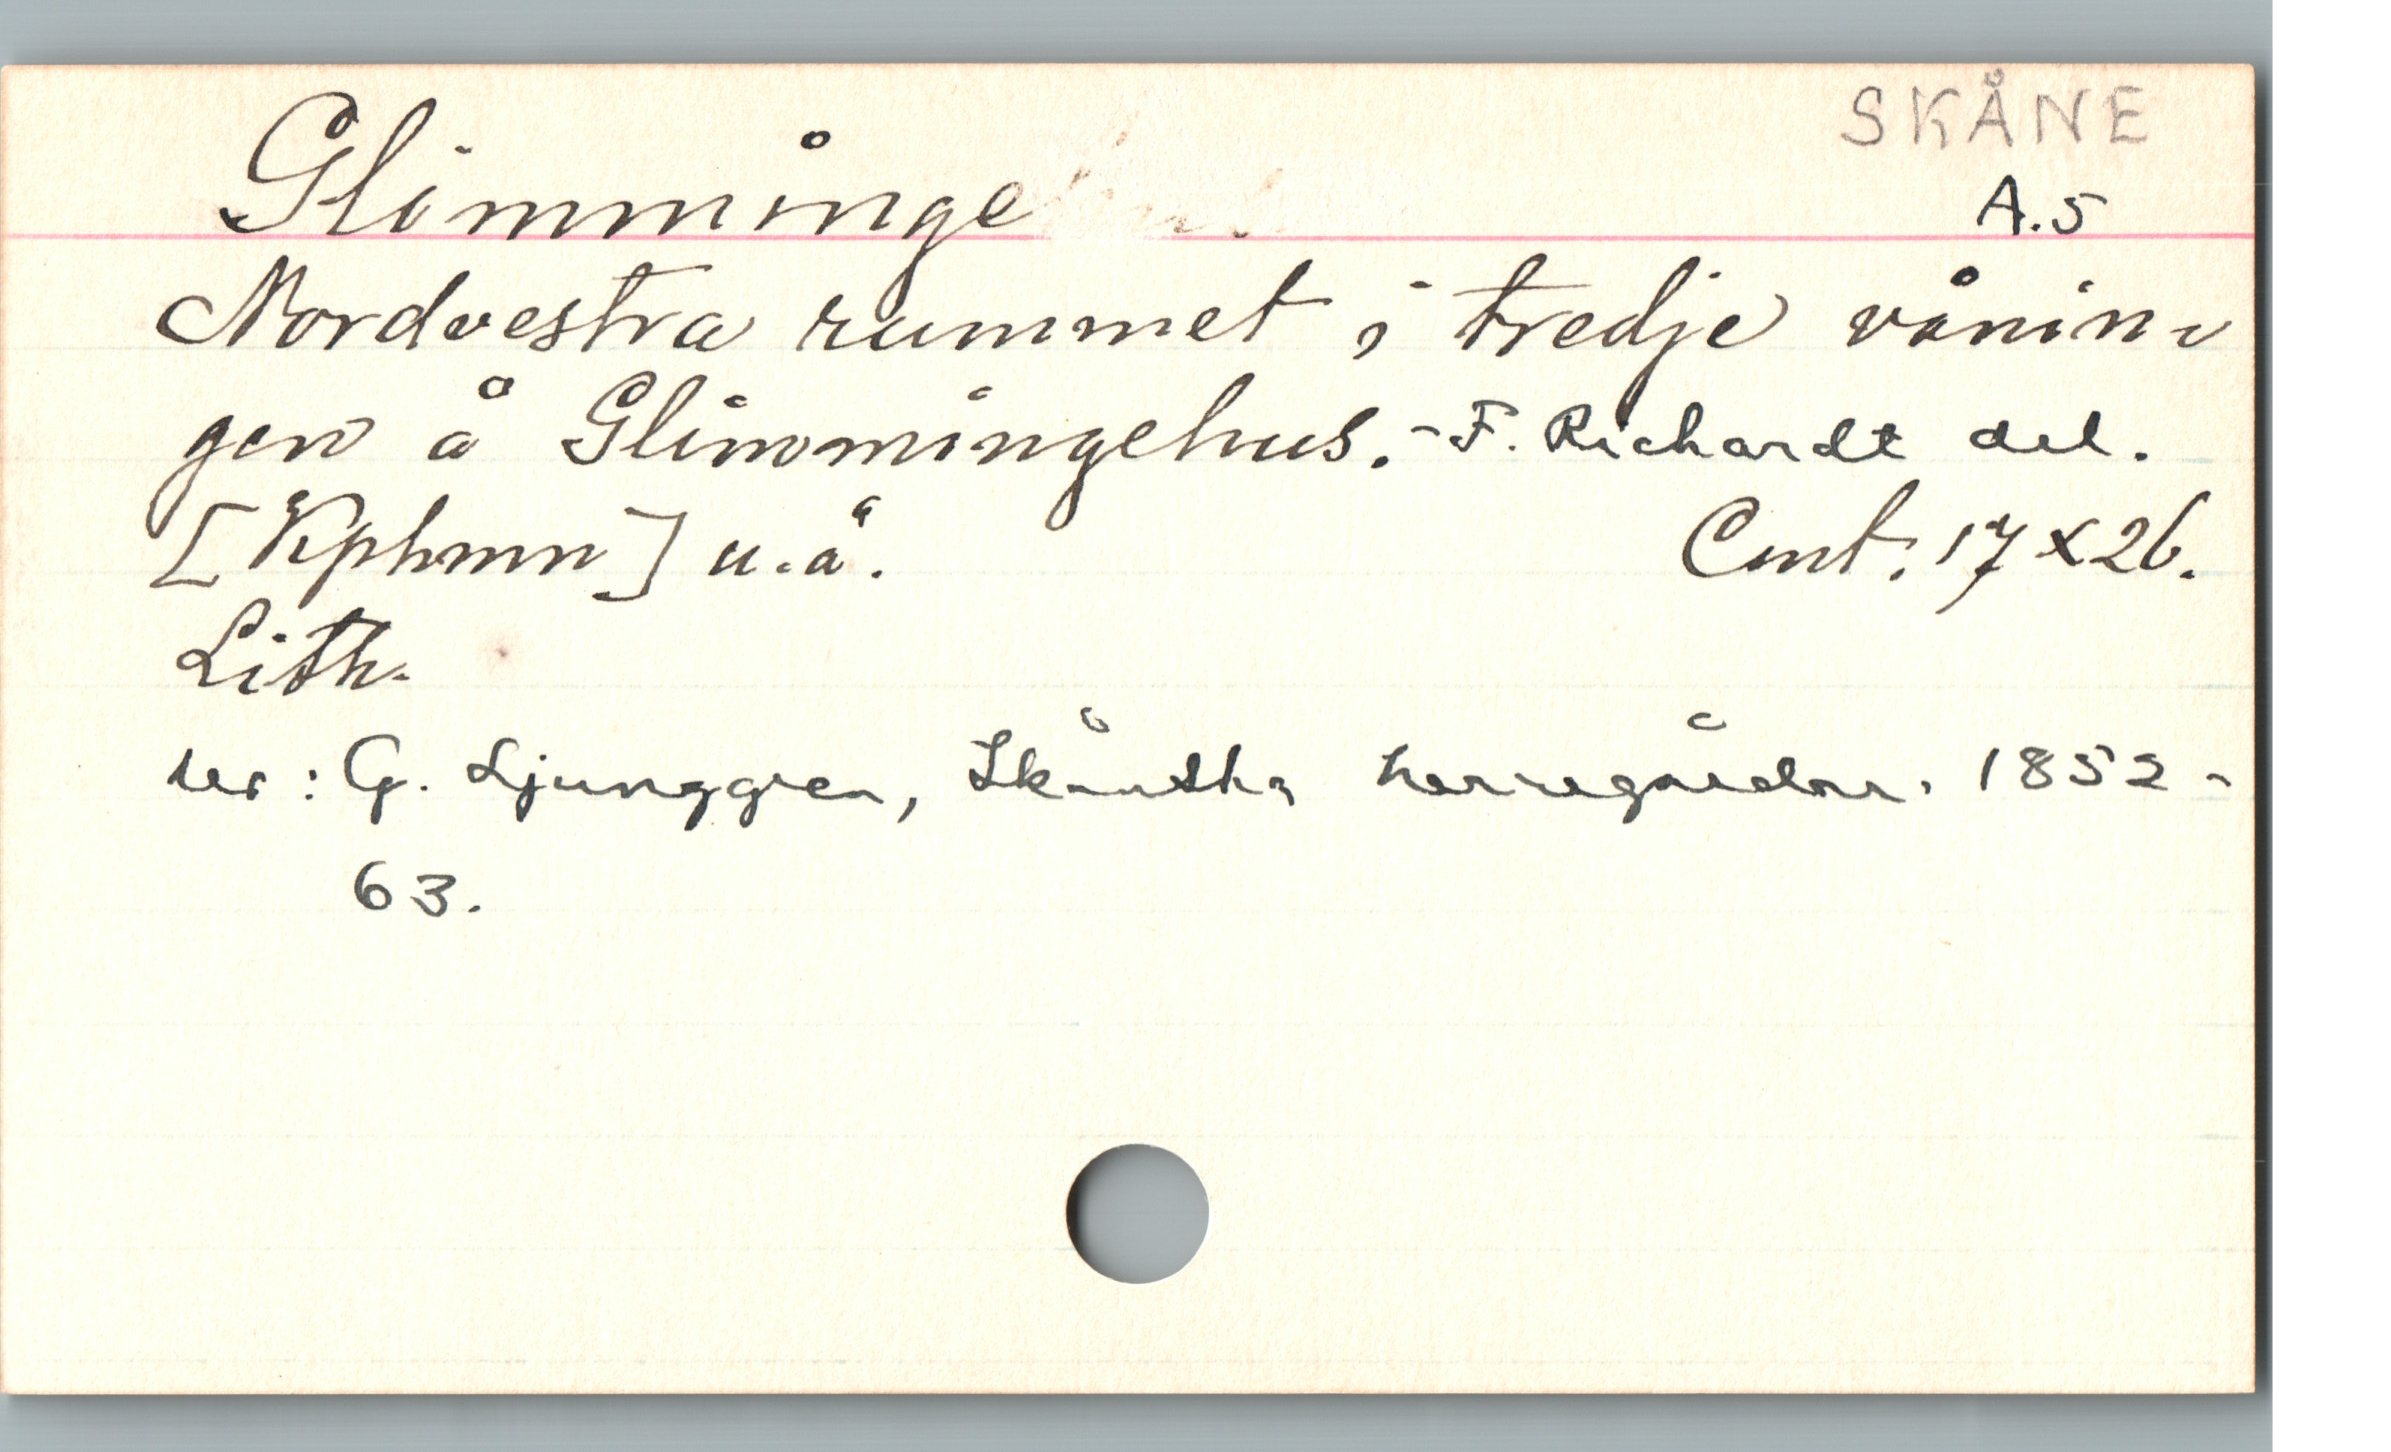 SKÅNE
Glimminge
A.5
Nordvestra rummet i tredje vånin-
gen å Glimmingehus. - F. Richardt del.
[Kphmn] u.å. Cmt. 17 x 26.
Lith.
Ur: G. Ljunggren, Skånska herregårdar. 1852-
63.